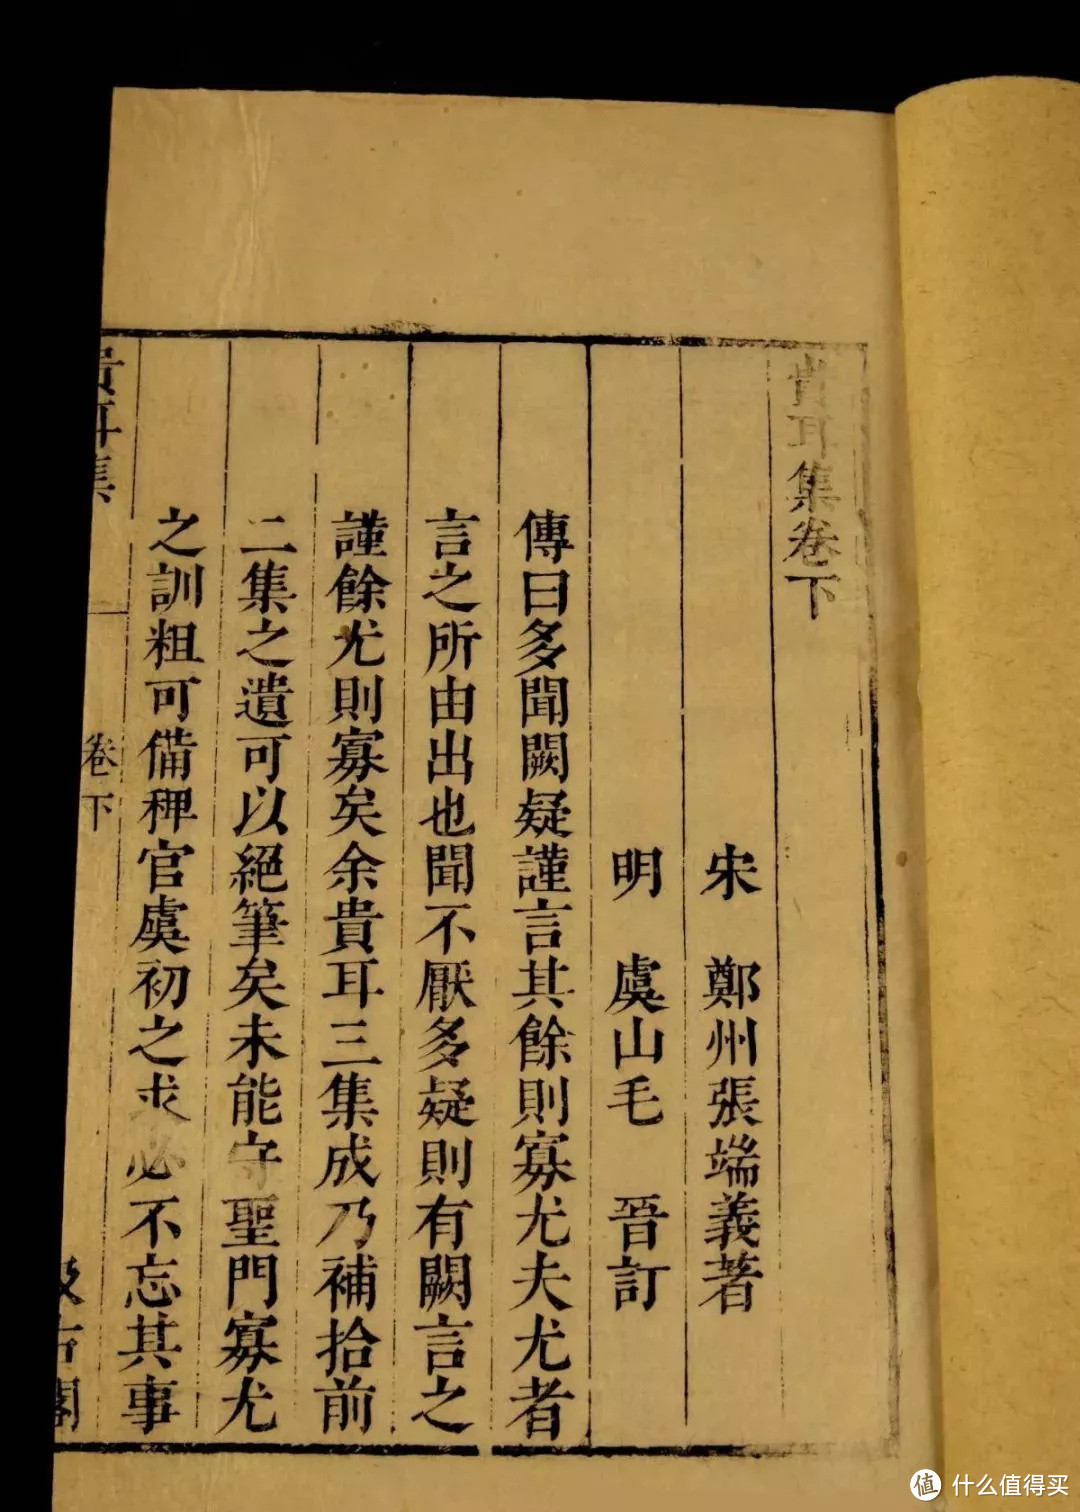 貴耳集卷下
宋　鄭州張端義著
明　虞山毛　晉訂
傳曰多聞闕疑謹言其餘則寡尤夫尤者
言之所由出也聞不厭多疑則有闕言之
謹餘尤則寡矣余貴耳三集成乃補拾前
二集之遺可以絕筆矣未能守聖門寡尤
之訓粗可備稗官虞初之求必不忘其事
貴耳集　卷下　汲古閣
值 什么值得买